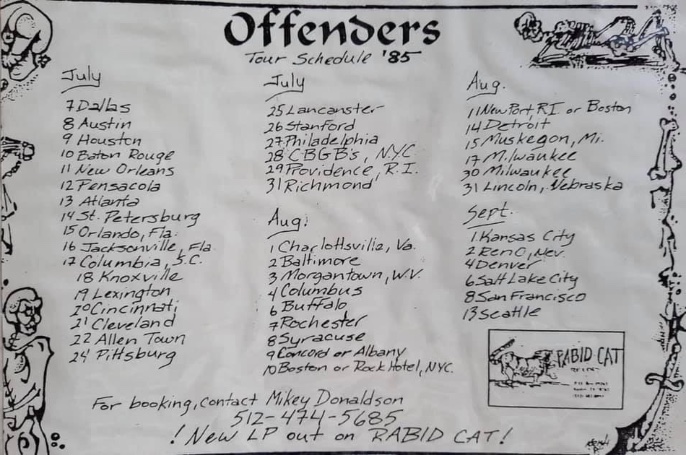 Offenders
Tour Schedule '85
July
7 Dallas
8 Austin
9 Houston
10 Baton Rouge
11 New Orleans
12 Pensacola
13 Atlanta
14 St. Petersburg
15 Orlando, Fla.
16 Jacksonville, Fla.
17 Columbia, S.C.
18 Knoxville
19 Lexington
20 Cincinnati
21 Cleveland
22 Allen Town
24 Pittsburg
July
25 Lancanster
26 Stanford
27 Philadelphia
28 CBGB's, N.Y.C.
29 Providence, R.I.
31 Richmond
Aug.
1 Charlottsville, Va.
2 Baltimore
3 Morgantown, W.V.
4 Columbus
6 Buffalo
7 Rochester
8 Syracuse
9 Concord or Albany
10 Boston or Rock Hotel, NYC.
Aug.
11 New Port, R.I. or Boston
14 Detroit
15 Muskegon, Mi.
17 Milwaukee
30 Milwaukee
31 Lincoln, Nebraska
Sept.
1 Kansas City
2 Reno, Nev.
4 Denver
6 Salt Lake City
8 San Francisco
13 Seattle
RABID CAT
For booking, contact Mikey Donaldson
512-474-5685
! New LP out on RABID CAT!